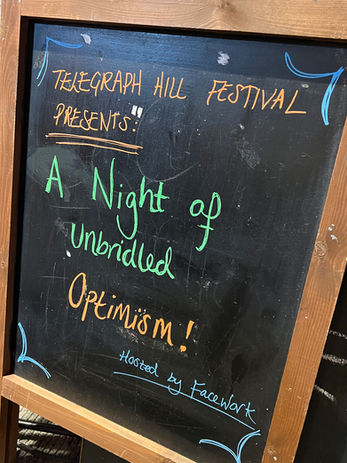 TELEGRAPH HILL FESTIVAL
PRESENTS:"
A Night of
Unbridled
Optimism!
Hosted by FaceWork